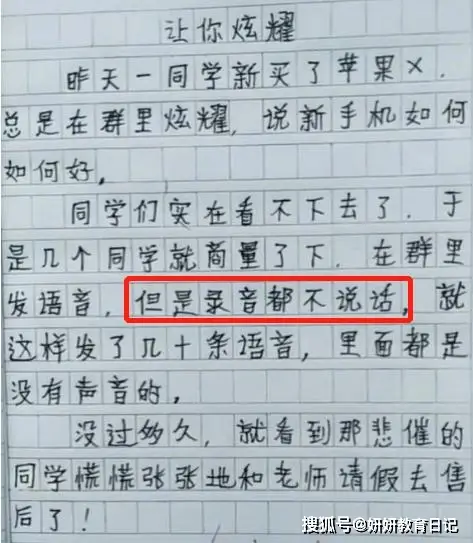 让你炫耀
昨天一同学新买了苹果X.
总是在群里炫耀,说新手机如何
如何好。
同学们实在看不下去了.于
是几个同学就商量了下.在群里
发语音,但是录音都不说话,就
这样发了几十条语音,里面都是
没有声音的。
没过多久,就看到那悲催的
同学慌慌张张地和老师请假去售
后了!
搜狐号@妍妍教育日记